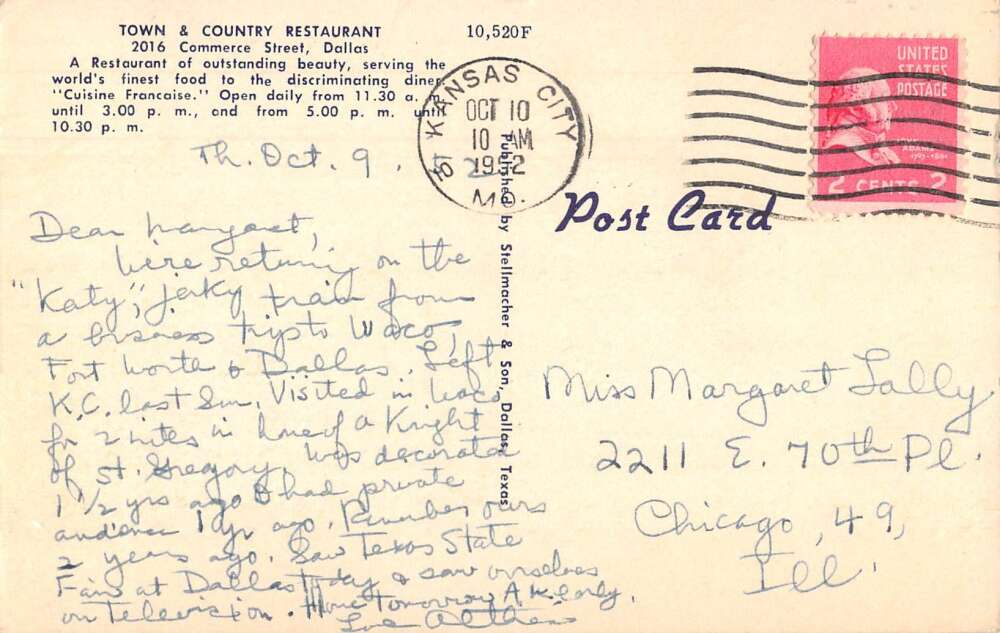 TOWN & COUNTRY RESTAURANT
2016 Commerce Street, Dallas
A Restaurant of outstanding beauty, serving the
world's finest food to the discriminating diner.
"Cuisine Francaise." Open daily from 11.30 a.
until 3.00 p. m., and from 5.00 p. m. until
10.30 p. m.
10,520F
KANSAS CITY
OCT 10
10 AM
1952
MO.
UNITED
STATES
POSTAGE
ADAMS
2 CENTS 2
Post Card
Published by Stellmacher & Son, Dallas, Texas
Th. Oct. 9.
Dear Margaret,
We're returning on the
"Katy", jerky train from
a business trip to Waco,
Fort Worth & Dallas. Left
K.C. last Sun. Visited in Waco
for 2 nites in home of a Knight
of St. Gregory. Was decorated
1 1/2 yrs ago & had private
audience 1 yr ago. Remember ours
2 years ago. Saw Texas State
Fair at Dallas today & saw ourselves
on Television. Home tomorrow A.M. early.
Love Althea
Miss Margaret Lally
2211 E. 70th Pl.
Chicago, 49,
Ill.